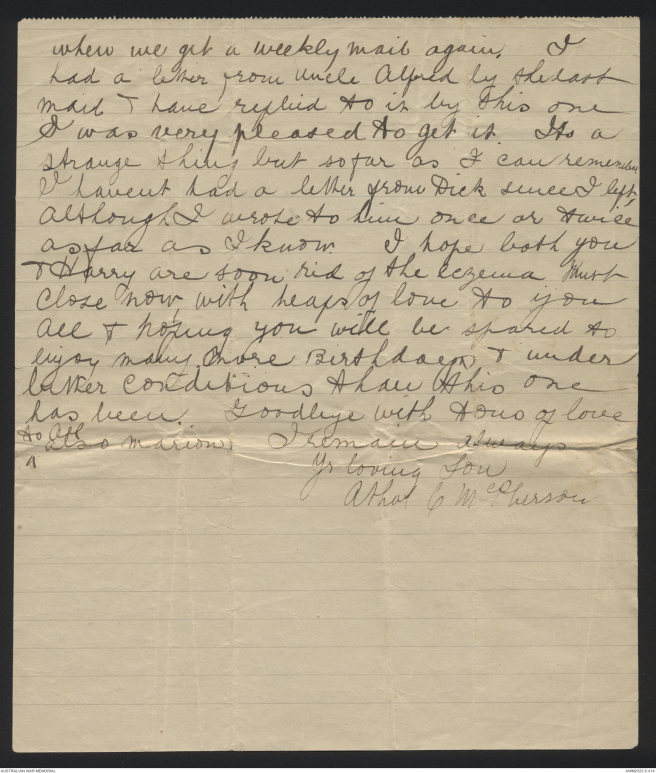 when we get a weekly mail again. I
had a letter from Uncle Alfred by the last
mail & have replied to it by this one
I was very pleased to get it. Its a
strange thing but so far as I can remember
I havent had a letter from Dick since I left,
although I wrote to him once or twice
as far as I know. I hope both you
& Harry are soon rid of the eczema. Must
close now, with heaps of love to you
all & hoping you will be spared to
enjoy many more Birthdays, & under
better conditions than this one
has been. Goodbye with tons of love
to all
also Marion. I remain always
Yr loving Son
Athol C McPherson
AUSTRALIAN WAR MEMORIAL